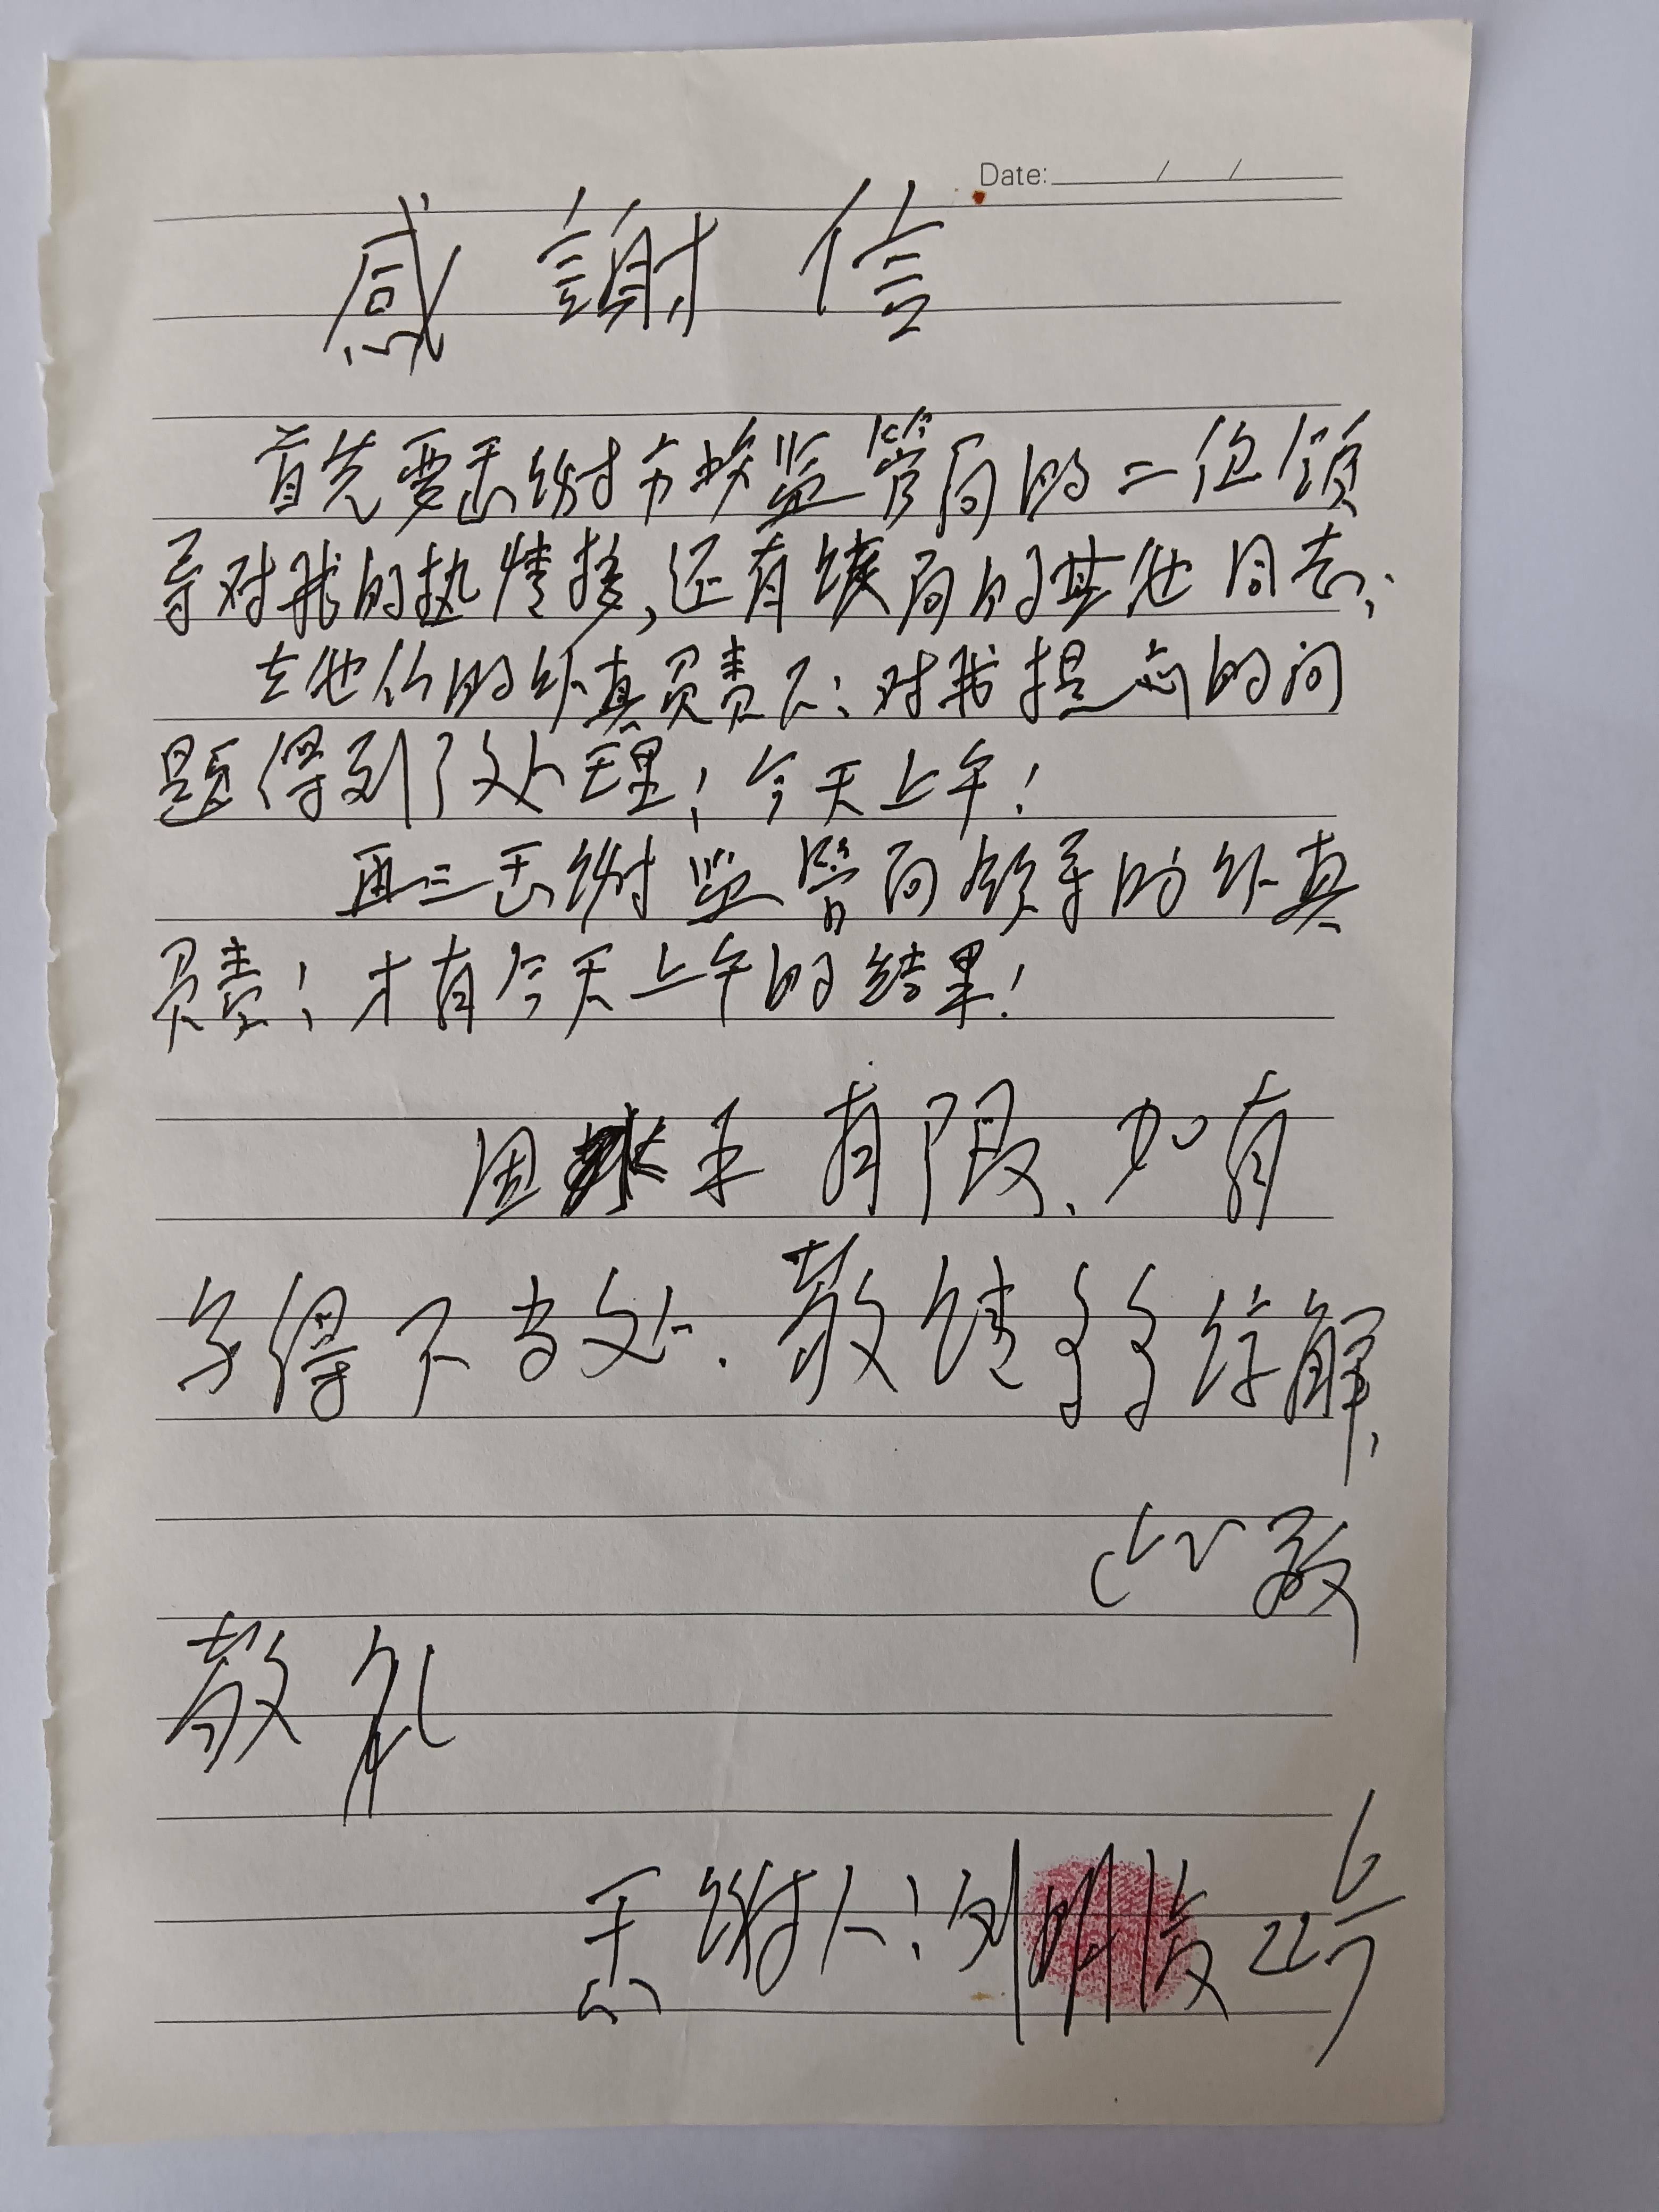 Date: / /
感謝信
首先要感谢市场监管局的二位领
导对我的热情接,还有该局的其他同志,
在他们的认真负责下:对我提出的问
题得到了处理!今天上午!
再三感谢监管局领导的认真
负责!才有今天上午的结果!
因水平有限、如有
写得不当处.敬请多多谅解,
此致
敬礼
感谢人:刘明俊 22号 6/7